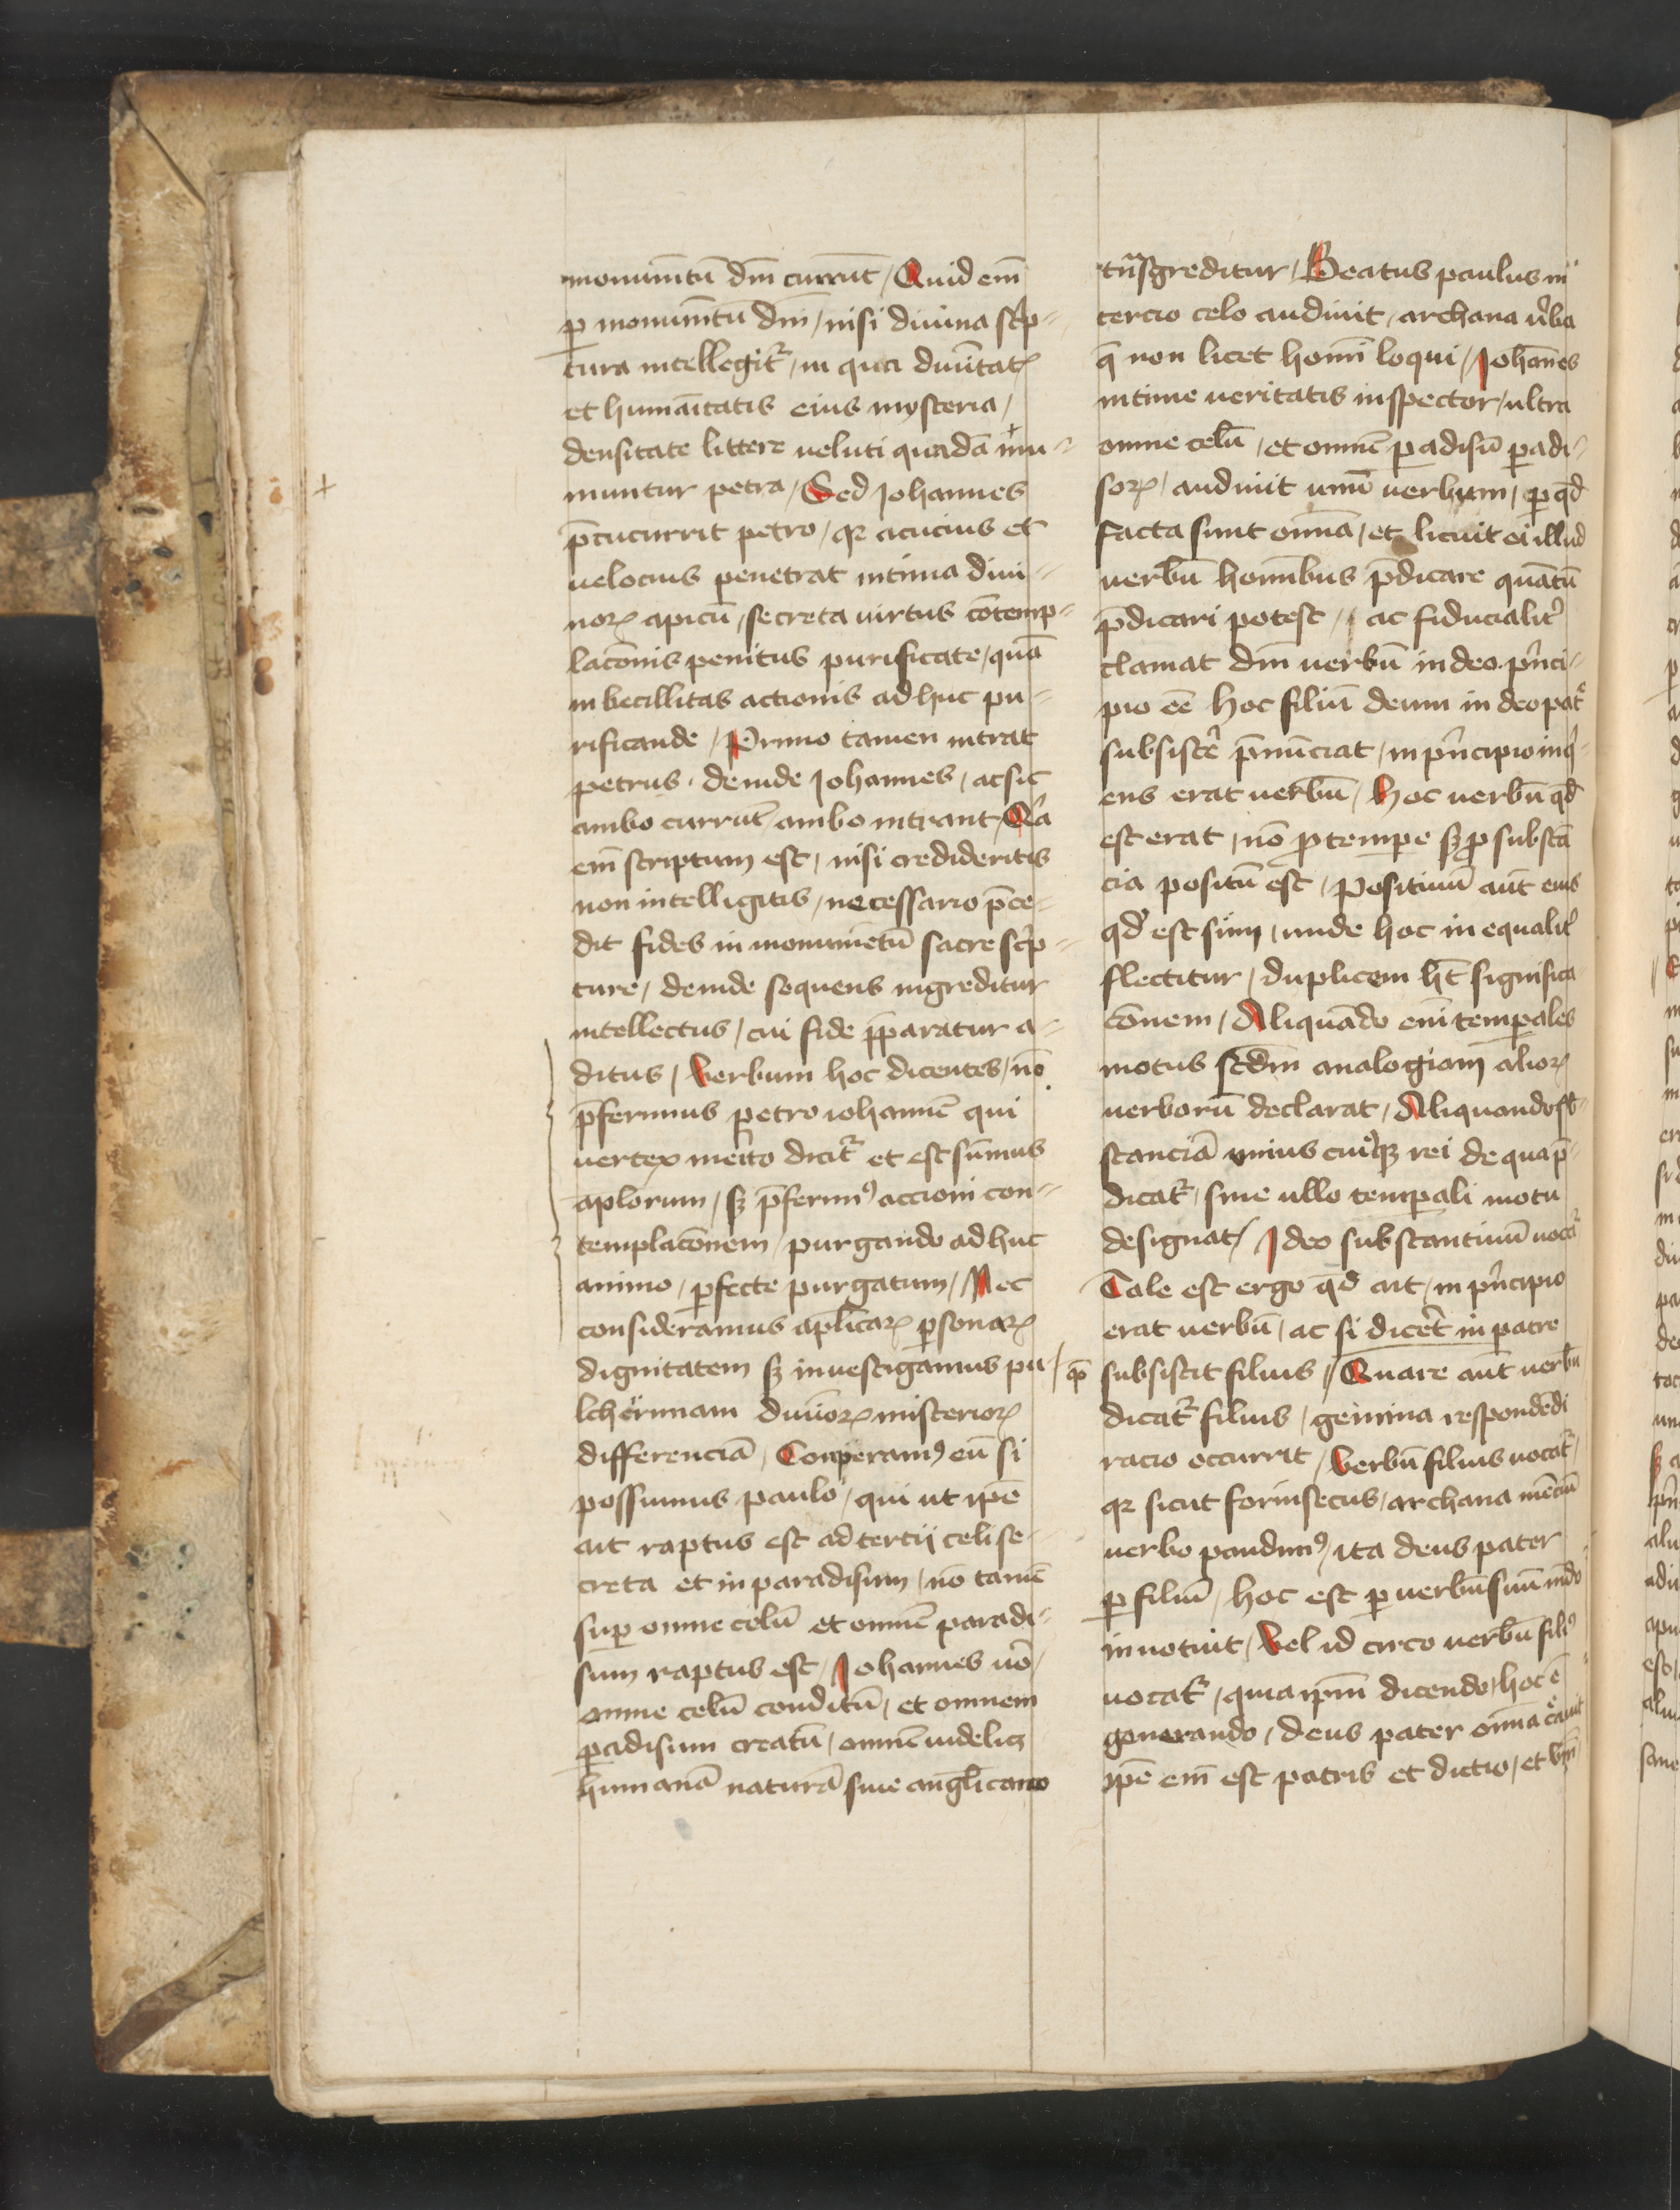 monumētū dm̄ currūt / Quid em̄
ꝑ monumētū dm̄ / nisi diuina sc̄p-
tura intellegitᷣ / in qua diuītatꝭ
et humaītatis eius mysteria /
densitate littere ueluti quadā mu-
muntur petra / Sed Johannes
p̄cucurrit petro / qꝛ acucius et
uelocius penetrat intima diui-
noꝝ apicū / secreta uirtus cōtemp-
lacōnis penitus purificate / quā
inbecillitas actionis adhuc pu-
rificande / Primo tamen intrat
petrus · deinde Johannes / ac sic
ambo currūt ambo intrant / Qͣa
em̄ scriptum est / nisi credideritis
non intelligitis / necessario p̄ce-
dit fides in monumētū sacre sc̄p-
ture / deinde sequens ingreditur
intellectus / cui fide p̄paratur a-
ditus / Verbum hoc dicentes / nō
p̄ferimus petro iohannē qui
uertex mērito dicitᷣ et est sūmus
aplōrum / sꝫ p̄ferimꝰ accioni con-
templacōnem / purgando adhuc
animo / ꝑfecte purgatum / Nec
consideramus aplīcaꝝ ꝑsonaꝝ
dignitatem sꝫ inuestigamus pu-
lcherimam diuīoꝝ misterioꝝ
differenciā / Conperamꝰ eū si
possumus paulo / qui ut ipē
ait raptus est ad tertij celi se-
creta et in paradisum / nō tamē
suꝑ omne celū et omnē paradi-
sum raptus est / Johannes uō /
omne celū conditū / et omnem
ꝑadisum creatū / omnē uidelicꝫ
humanā naturā siue anglīcam
trn̄sgreditur / Beatus paulus in
tercio celo audiuit / archana ūba
q̄ non licet homī loqui / Johānes
intime ueritatis inspector / ultra
omne celū / et omnē ꝑadisū ꝑadi-
soꝝ / audiuit unū uerbum / ꝑ qd̄
facta sunt omīa / et licuit ei illud
uerbū homībus p̄dicare quātū
p̄dicari potest / ac fiducialitᷣ
clamat dm̄ uerbū in deo pn̄ci-
pio eē hoc filiū deum in deo patᷣ
subsistē p̄nūciat / in pn̄cipio inq̇-
ens erat uerbū / Hoc uerbū qd̄
est erat / nō ꝓ tempe sꝫ ꝓ substā
cia positū est / Positiuū aūt eius
qd̄ est sum / unde hoc in equalitᷣ
flectitur / duplicem hꝫ significa
cōnem / Aliquādo enī temporales
motus scdm̄ analogiam alioꝝ
uerborū declarat / Aliquando sb̄-
stanciā unius cuiꝰqꝫ rei de qua p̄-
dicatᷣ / sine ullo temporali motu
designat / Ideo substantiuū uocatᷣ
Tale est ergo qd̄ ait / in pn̄cipio
erat uerbū / ac si dicēt in patre
subsistit filius / Quare aūt uerbū
dicatᷣ filius / gemina respondēdi
racio occurrit / Verbū filius uocatᷣ /
qꝛ sicut forinsecus / archana mēciū
uerbo pandimꝰ / ita deus pater
ꝑ filiū / hoc est ꝑ uerbū suū mūdo
innotuit / Vel id circo uerbū filiꝰ
uocatᷣ / quia ipm̄ dicendo / hoc ē
generando / deus pater omīa cāuit
ipē em̄ est patris et dictio / et vbm̄